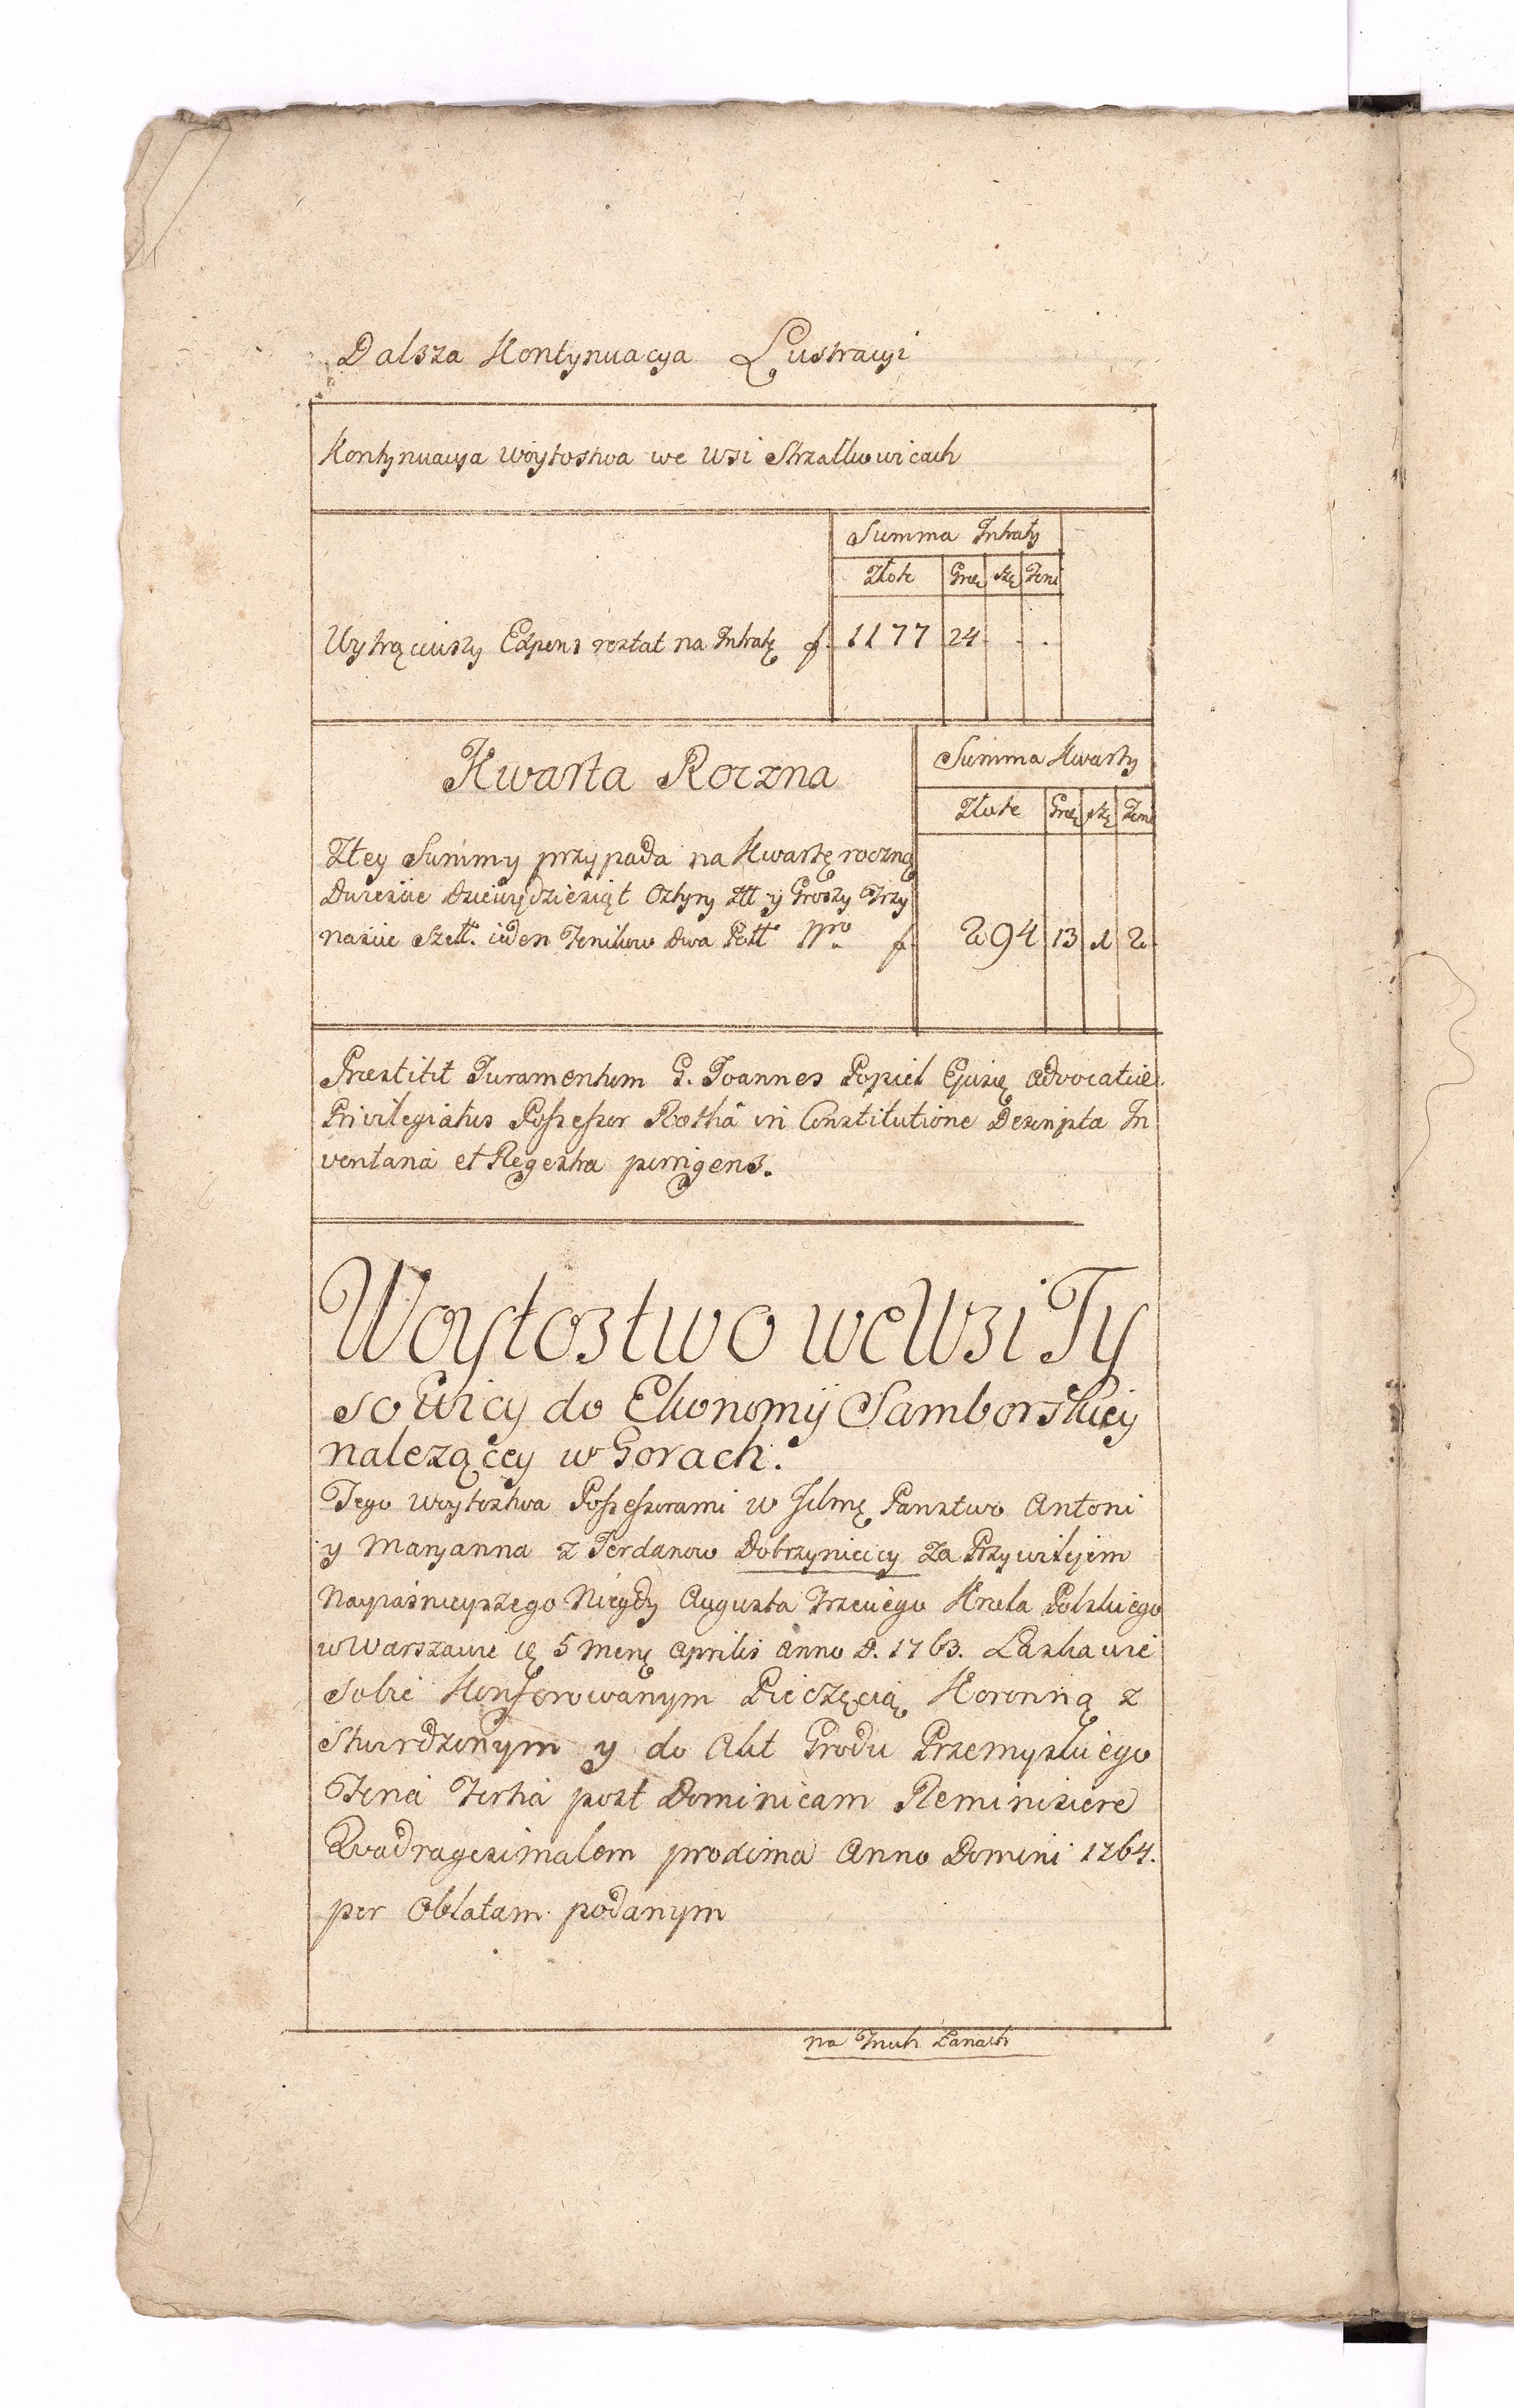 Dalsza Kontynuacya Lustracyi
Kontynuacya Woytostwa we Wsi Strzałkowicach
Summa Intraty
Złote Gro Szę Feni
Wytrąciwszy Expens restat na Intratę f. 1177 24 . .
Kwarta Roczna
Summa Kwarty
Złote Gro Szę Feni
Z tey Summy przypada na Kwartę roczną
Dwieście Dziewędziesiąt Cztyry Złł y Groszy Trzy
naście Szełł. ieden Fenikow Dwa Poll Nro f. 294 13 1 2
Præstitit Juramentum G. Joannes Popiel Ejusę Advocatiæ
Privilegiatus Possessor Rothâ in Constitutione Descripta In
ventaria et Regestra porrigens.
Woytostwo we Wsi Ty
sowicy do Ekonomij Samborskiey
nalezącey w Gorach.
Tego Woytostwa Possessorami w Jmę Panstwo Antoni
y Maryanna z Terdanow Dobrzynieccy za Przywilejem
Nayiasnieyszego Niegdy Augusta Trzeciego Krola Polskiego
w Warszawie 5 Aprilis Anno D. 1763. Łaskawie
sobie Konferowanym Pieczęcią Koronną z
stwirdzonym y do Akt Grodu Przemyskiego
Feria Tertia post Dominicam Reminiscere
Quadragesimalem proxima Anno Domini 1764.
per Oblatam podanym
na Łanach